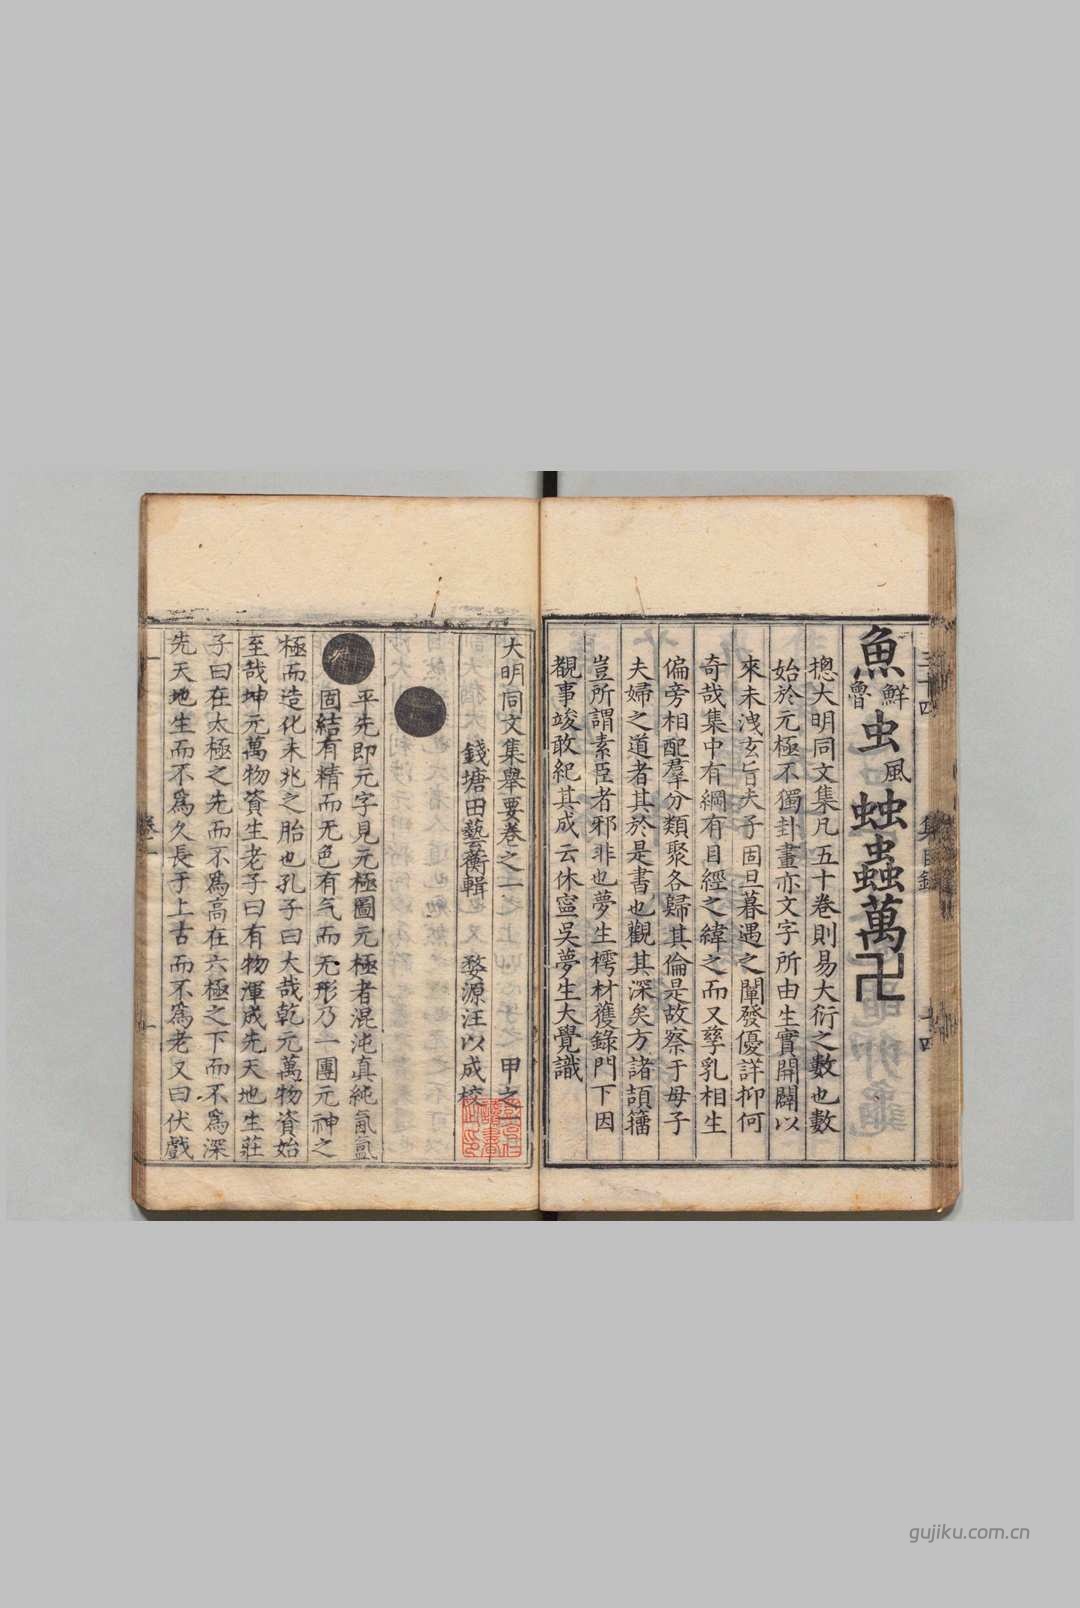 魚 鮮 魯 虫 風 䖵 蟲 萬 卍
摠大明同文集凡五十卷則易大衍之數也數
始於元極不獨卦畫亦文字所由生實開闢以
來未洩玄旨夫子固旦暮遇之闡發優詳抑何
奇哉集中有綱有目經之緯之而又孳乳相生
偏旁相配羣分類聚各歸其倫是故察于母子
夫婦之道者其於是書也觀其深矣方諸頡籀
豈所謂素臣者邪非也夢生樗材獲錄門下因
覩事竣敢紀其成云休寍吳夢生大覺識
大明同文集舉要卷之一 甲之一
錢塘田藝蘅輯 婺源汪以成校
平先即元字見元極圖元極者混沌真純氤氲
固結有精而无色有气而无形乃一團元神之
極而造化未兆之胎也孔子曰大哉乾元萬物資始
至哉坤元萬物資生老子曰有物渾成先天地生莊
子曰在太極之先而不爲高在六極之下而不爲深
先天地生而不爲久長于上古而不爲老又曰伏戲
gujiku.com.cn